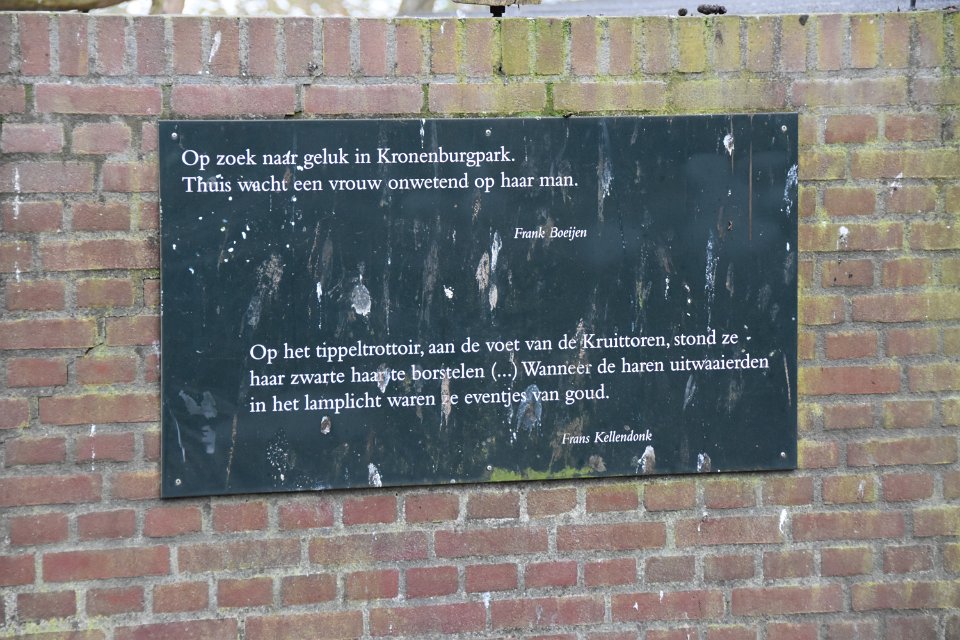 Op zoek naar geluk in Kronenburgpark.
Thuis wacht een vrouw onwetend op haar man.
Frank Boeijen
Op het tippeltrottoir, aan de voet van de Kruittoren, stond ze
haar zwarte haar te borstelen (...) Wanneer de haren uitwaaierden
in het lamplicht waren ze eventjes van goud.
Frans Kellendonk